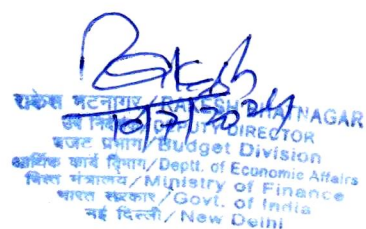 राकेश भटनागर / RAKESH BHATNAGAR
उप निदेशक / DEPUTY DIRECTOR
बजट प्रभाग / Budget Division
आर्थिक कार्य विभाग / Deptt. of Economic Affairs
वित्त मंत्रालय / Ministry of Finance
भारत सरकार / Govt. of India
नई दिल्ली / New Delhi